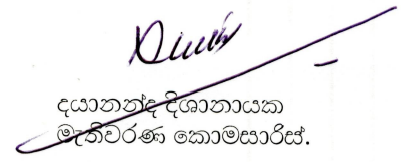 දයානන්ද දිශානායක
මැතිවරණ කොමසාරිස්.